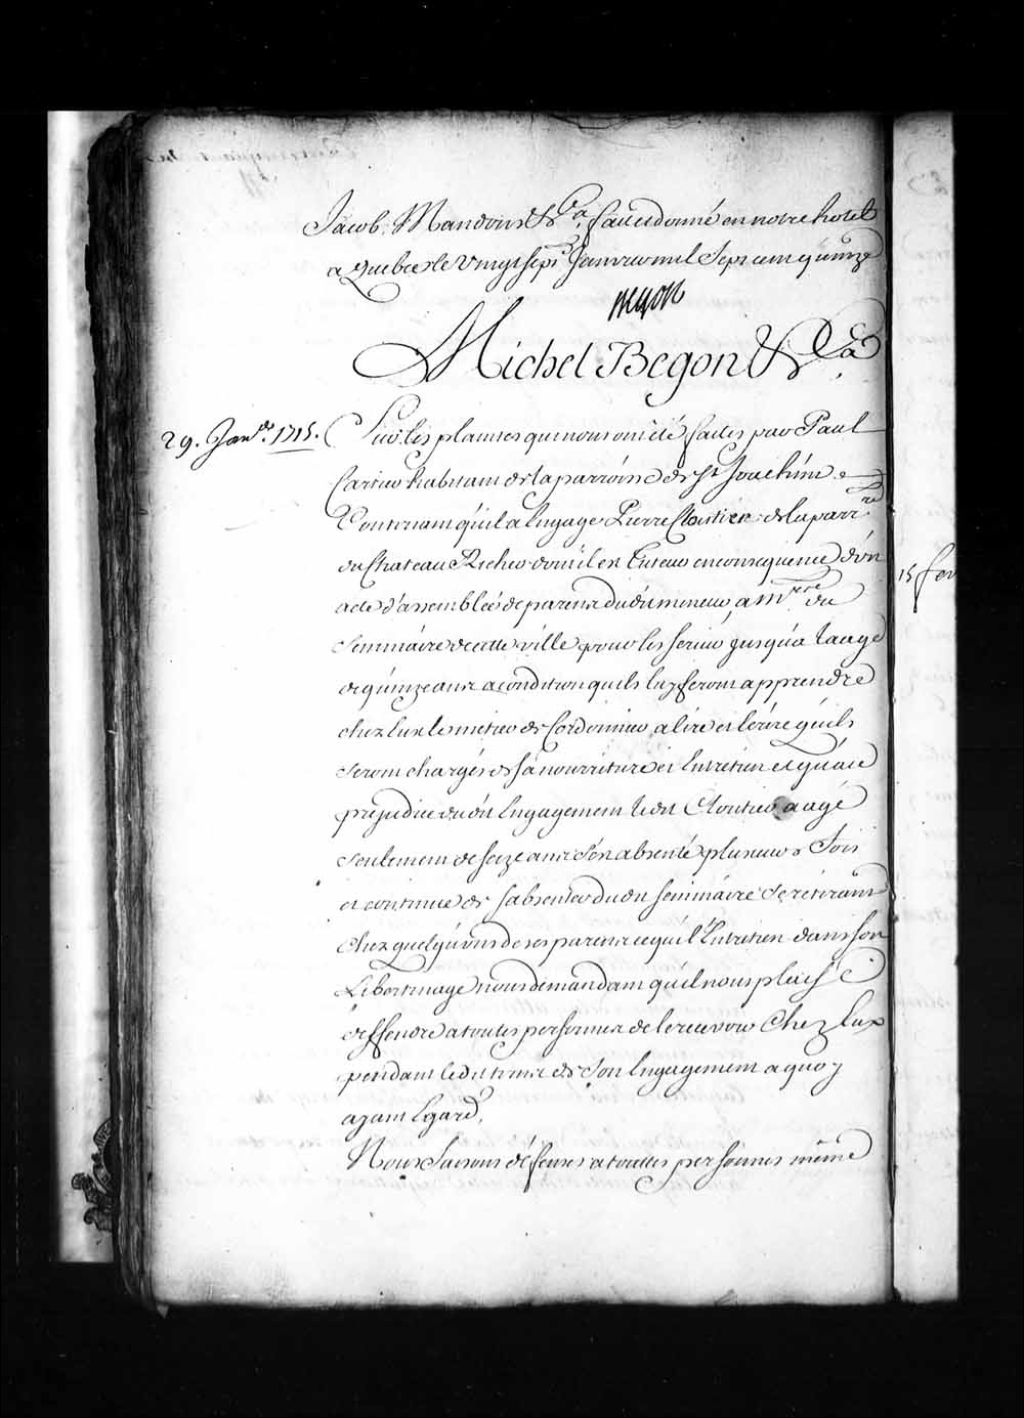 Jacob. Mandoux &ca. fait et donné en notre hotel
a Quebec le Vingt sept Janvier mil Sept cent quinze
Begon
Michel Begon &ca.
29. Janer. 1715.
Sur les plaintes qui nous ont été faites par Paul
Carier habitant de la parroisse de St. Joachim
Contenant qu'il a Engagé Pierre Cloutier de la parre
du Chateau Richer dont il est Tuteur en consequence d'un
acte d'assemblée de parens dudit mineur, a Mrs. du
Seminaire de cette ville pour les servir jusqu'a l'aage
de quinze ans a condition quils luy feront apprendre
chez Eux le metier de Cordonnier a lire et Ecrire qu'ils
seront chargés de sa nourriture et Entretien et qu'au
préjudice dudit Engagement ledit Cloutier aagé
Seulement de Seize ans s'est absenté plusieurs fois
et continue de s'absenter dudit seminaire se retirant
Chez quelqu'uns de ses parens ce qui l'Entretien dans son
Libertinage nous demandant qu'il nous plaise
deffendre a toutes personnes de le recevoir Chez Eux
pendant ledit tems de son Engagement a quoy
ayant Egard,
Nous faisons défenses a touttes personnes même
15 fev